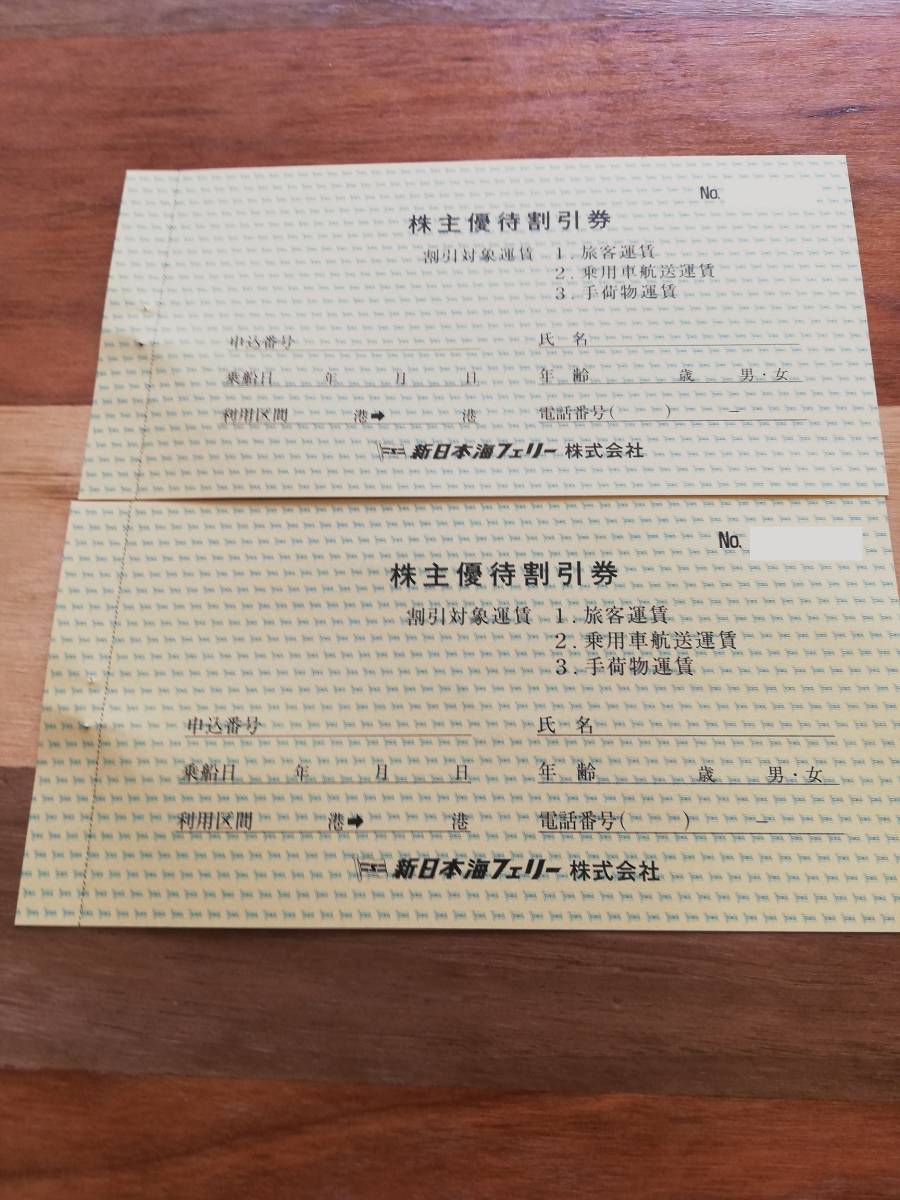 No.
株主優待割引券
割引対象運賃 1. 旅客運賃
2. 乗用車航送運賃
3. 手荷物運賃
申込番号 氏 名
乗船日 年 月 日 年 齢 歳 男・女
利用区間 港➡ 港 電話番号( ) −
新日本海フェリー 株式会社
No.
株主優待割引券
割引対象運賃 1. 旅客運賃
2. 乗用車航送運賃
3. 手荷物運賃
申込番号 氏 名
乗船日 年 月 日 年 齢 歳 男・女
利用区間 港➡ 港 電話番号( ) −
新日本海フェリー 株式会社